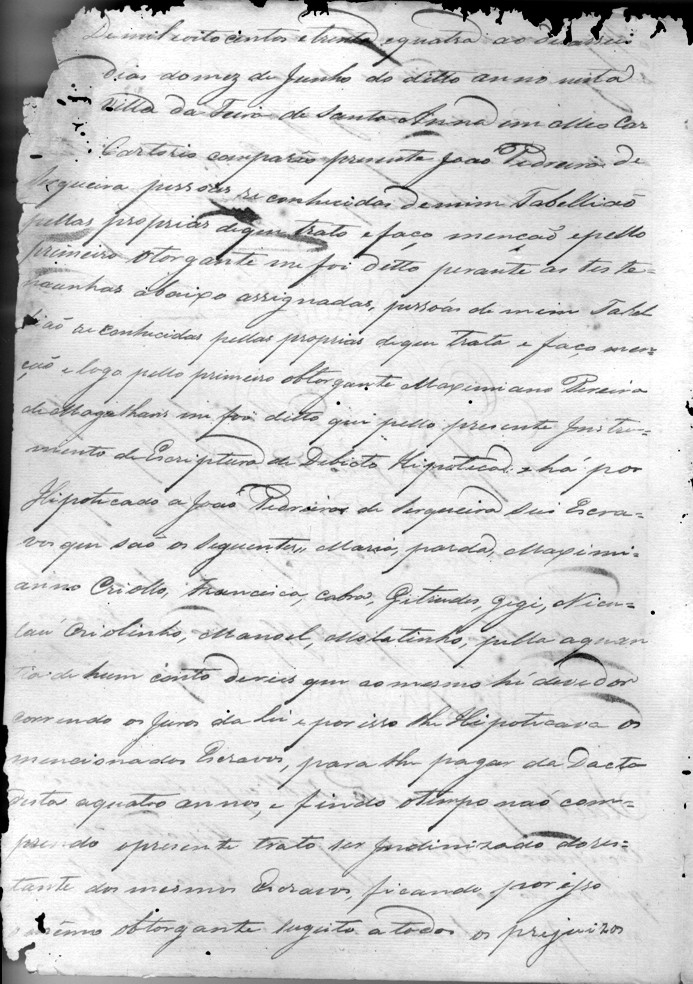 De mil oito centos e trenta e quatro ao dezasseis
dias do mez de Junho do ditto anno nesta
Villa da Feira de Santa Anna em Meo Car
Cartorio comparão prezente João Pedreira de
Serqueira pessoas reconhecidas de mim Tabellião
pellas proprias de que trato e faço menção e pello
primeiro Otorgante me foi ditto perante as teste=
munhas abaixo assignadas, pessoas de mim Tabel
lião reconhecidas pellas proprias de que trato e faço men=
ção e logo pello primeiro obtorgante Maximiano Pereira
de Magalhans me foi ditto que pello presente Instru=
mento de Escriptura de Debicto Hipoticado e há por
Hipoticado a João Pedreira de Serqueira seus Escra=
vos que saõ os seguentes, Maria, parda, Maximi=
anno Criollo, Francisca, cabra, Getrudes, Gegi, Nicu=
lau Criolinho, Manoel, Molatinho, pella a quan
tia de hum conto de reis que ao mesmo hé devedor
correndo os Juros da lei e por isso lhe Hipoticava os
mencionados Escravos, para lhe pagar da Dacta
desta a quatro annos, e findo o tempo naõ com=
prindo o presente trato ser Indinizado do res=
tante dos mesmos Escravos, ficando por isso
o mesmo obtorgante sugeito a todos os prejuizos